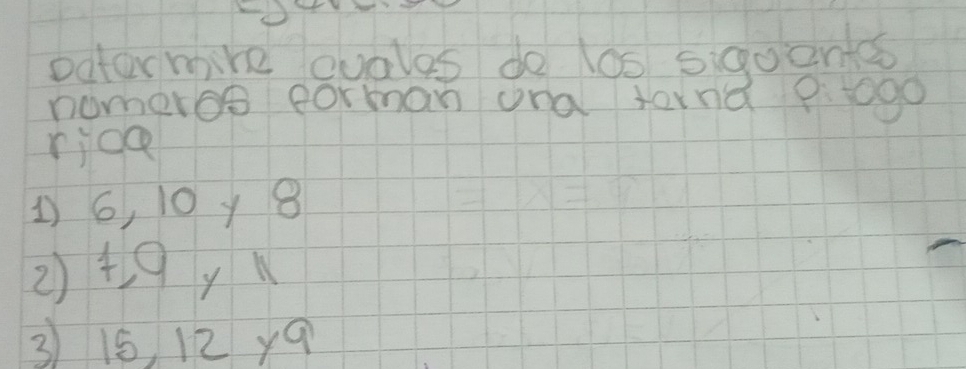 Determine cuales de los siguentes
numeros forman una terna pitago
rica
1) 6, 10 y 8
2) 7, 9 y 11
3) 15, 12 y 9